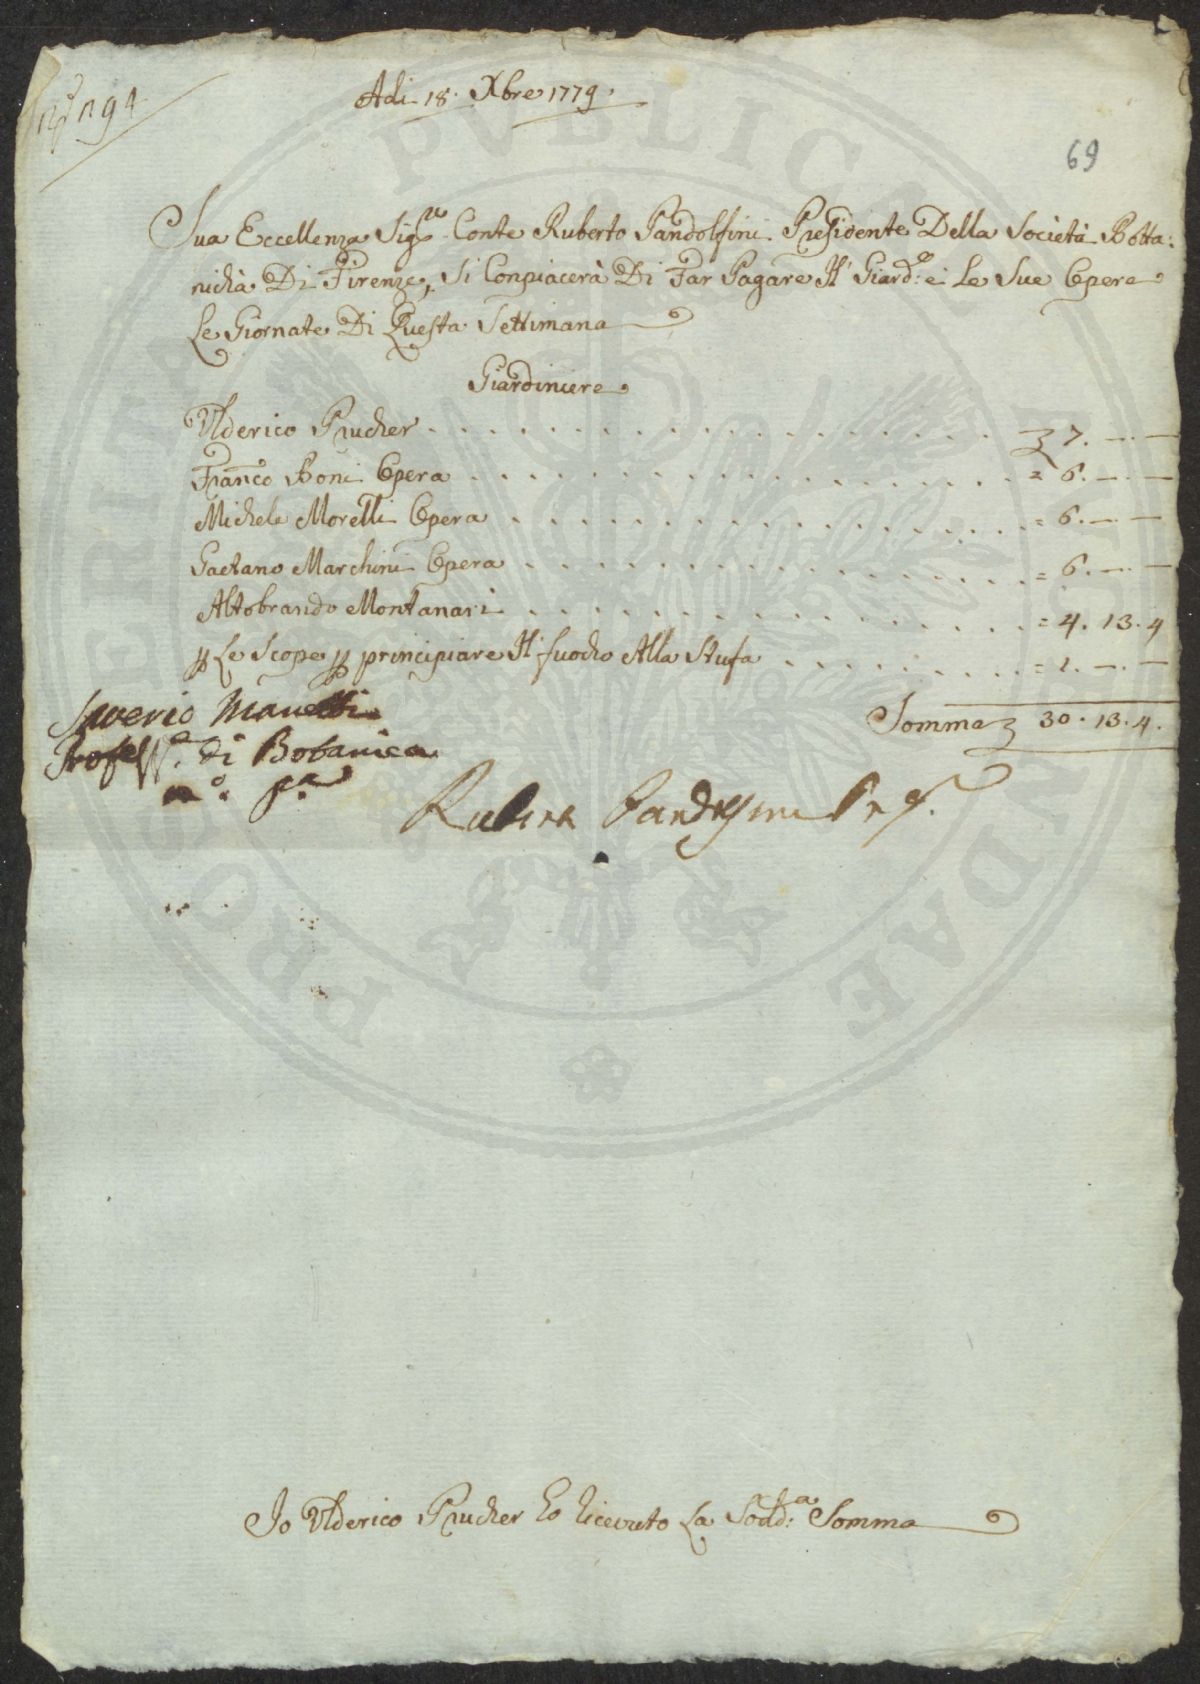 Adi 18. Xbre 1779.
69
Sua Eccellenza Sig.re Conte Ruberto Pandolfini Presidente Della Società Botta:
nicha Di Firenze, Si Conpiacerà Di Far Pagare Il Giard:e e Le Sue Opere
Le Giornate Di Questa Settimana
Giardiniere
Ulderico Prucher . . . 7. — —
Fran.co Boni Opera . . . = 6. — —
Michele Morelli Opera . . . = 6. — —
Gaetano Marchini Opera . . . = 6. — —
Altobrando Montanari . . . = 4. 13. 4
p Le Scope p principiare Il fuocho Alla Stufa . . . = 1. — —
Somma 30. 13. 4.
Saverio Manetti
Profess.e di Botanica
m.o p.a
Ruberto Pandolfini Pres.
Io Ulderico Prucher ho riceuto La Sodd:a Somma
PROSPERITATI PUBLICAE AUGENDAE